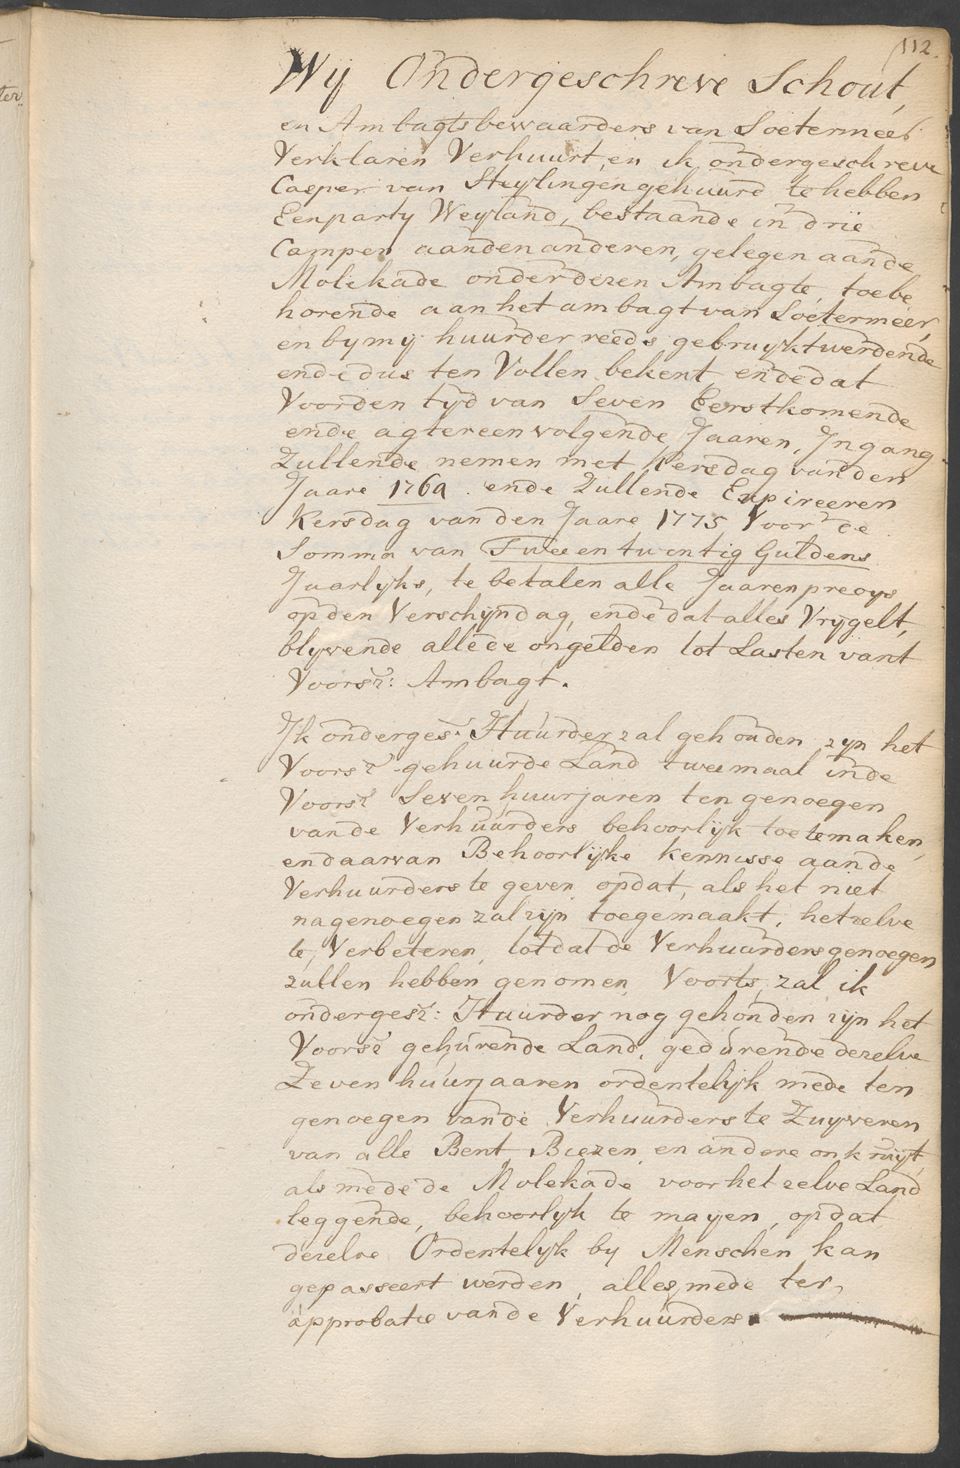 112.
Wij Ondergeschreve Schout,
en Ambagtsbewaarders van Soetermeer
Verklaren Verhuurt, en ik ondergeschreve
Casper van Steylingen gehuurd te hebben
Een party Weyland, bestaande in drie
Campen aan den anderen, gelegen aan de
Molekade onder dezen Ambagte, toebe
horende aan het ambagt van Soetermeer,
en by mij huurder reeds gebruykt werdende
ende dus ten Vollen bekent, ende dat
Voor den tijd van Seven Eerstkomende
ende agtereenvolgende Jaaren, Ingang
Zullende nemen met Kersdag van den
Jaare 1769. ende Zullende Expireeren
Kersdag van den Jaare 1775 Voor de
Somma van Twee en twentig Guldens
Jaarlijks, te betalen alle Jaaren precys
op den Verschijndag, ende dat alles Vrijgelt,
blyvende alle de ongelden tot Lasten vant
Voorsz: Ambagt.
Ik onderges: Huurder zal gehouden zyn het
Voorsz gehuurde Land tweemaal in de
Voorsz Seven huurjaren ten genoegen
van de Verhuurders behoorlijk toetemaken,
en daarvan Behoorlijke kennisse aan de
Verhuurders te geven, opdat, als het niet
na genoegen zal zijn toegemaakt, hetzelve
te Verbeteren, tot dat de Verhuurders genoegen
zullen hebben genomen, Voorts, zal ik
ondergesz: Huurder nog gehouden zijn het
Voorsz gehurende Land, gedurende dezelve
Zeven huurjaaren ordentelijk mede ten
genoegen van de Verhuurders te Zuyveren
van alle Bent, Biezen, en andere onkruijt,
als mede de Molekade voor het zelve Land
leggende, behoorlyk te mayen, opdat
dezelve Ordentelyk by Menschen kan
gepasseert werden, alles mede ter
approbatie van de Verhuurders.